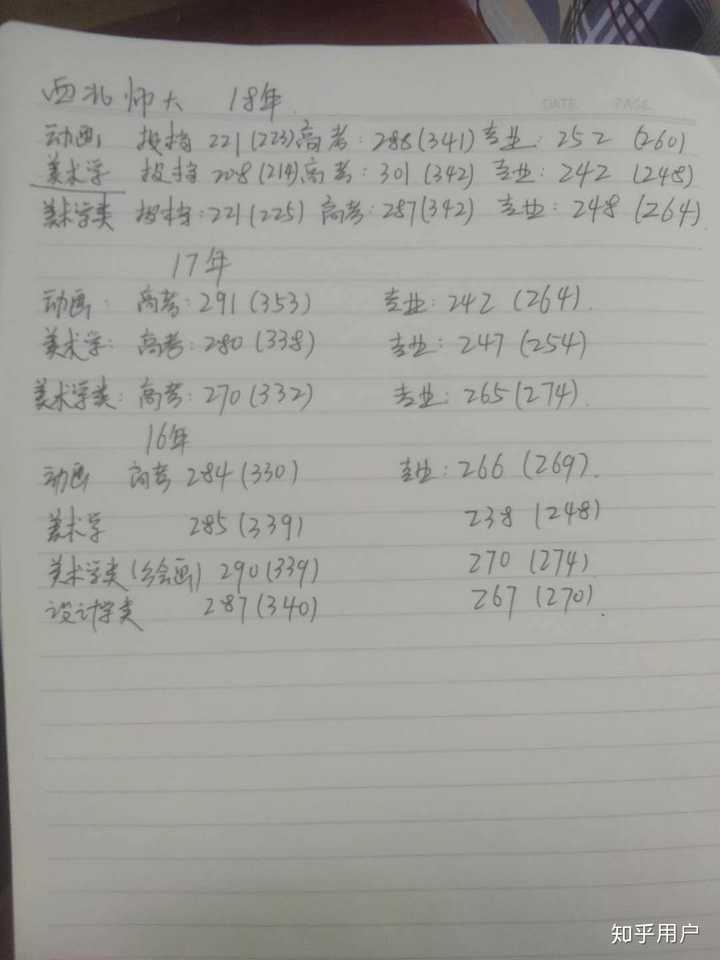 西北师大 18年
DATE PAGE
动画 投档 221(223)高考:288(341)专业:252 (260)
美术学 投档 208(214)高考:301(342) 专业:242(248)
美术学类 投档:221(225) 高考:287(342) 专业:248(264)
17年
动画: 高考:291(353) 专业:242(264).
美术学: 高考:280(338) 专业:247(254)
美术学类:高考:270(332) 专业:265(274).
16年
动画 高考 284(330) 专业:266(269).
美术学 285(339) 238(248)
美术学类(绘画) 290(339) 270(274)
设计学类 287(340) 267(270).
知乎用户